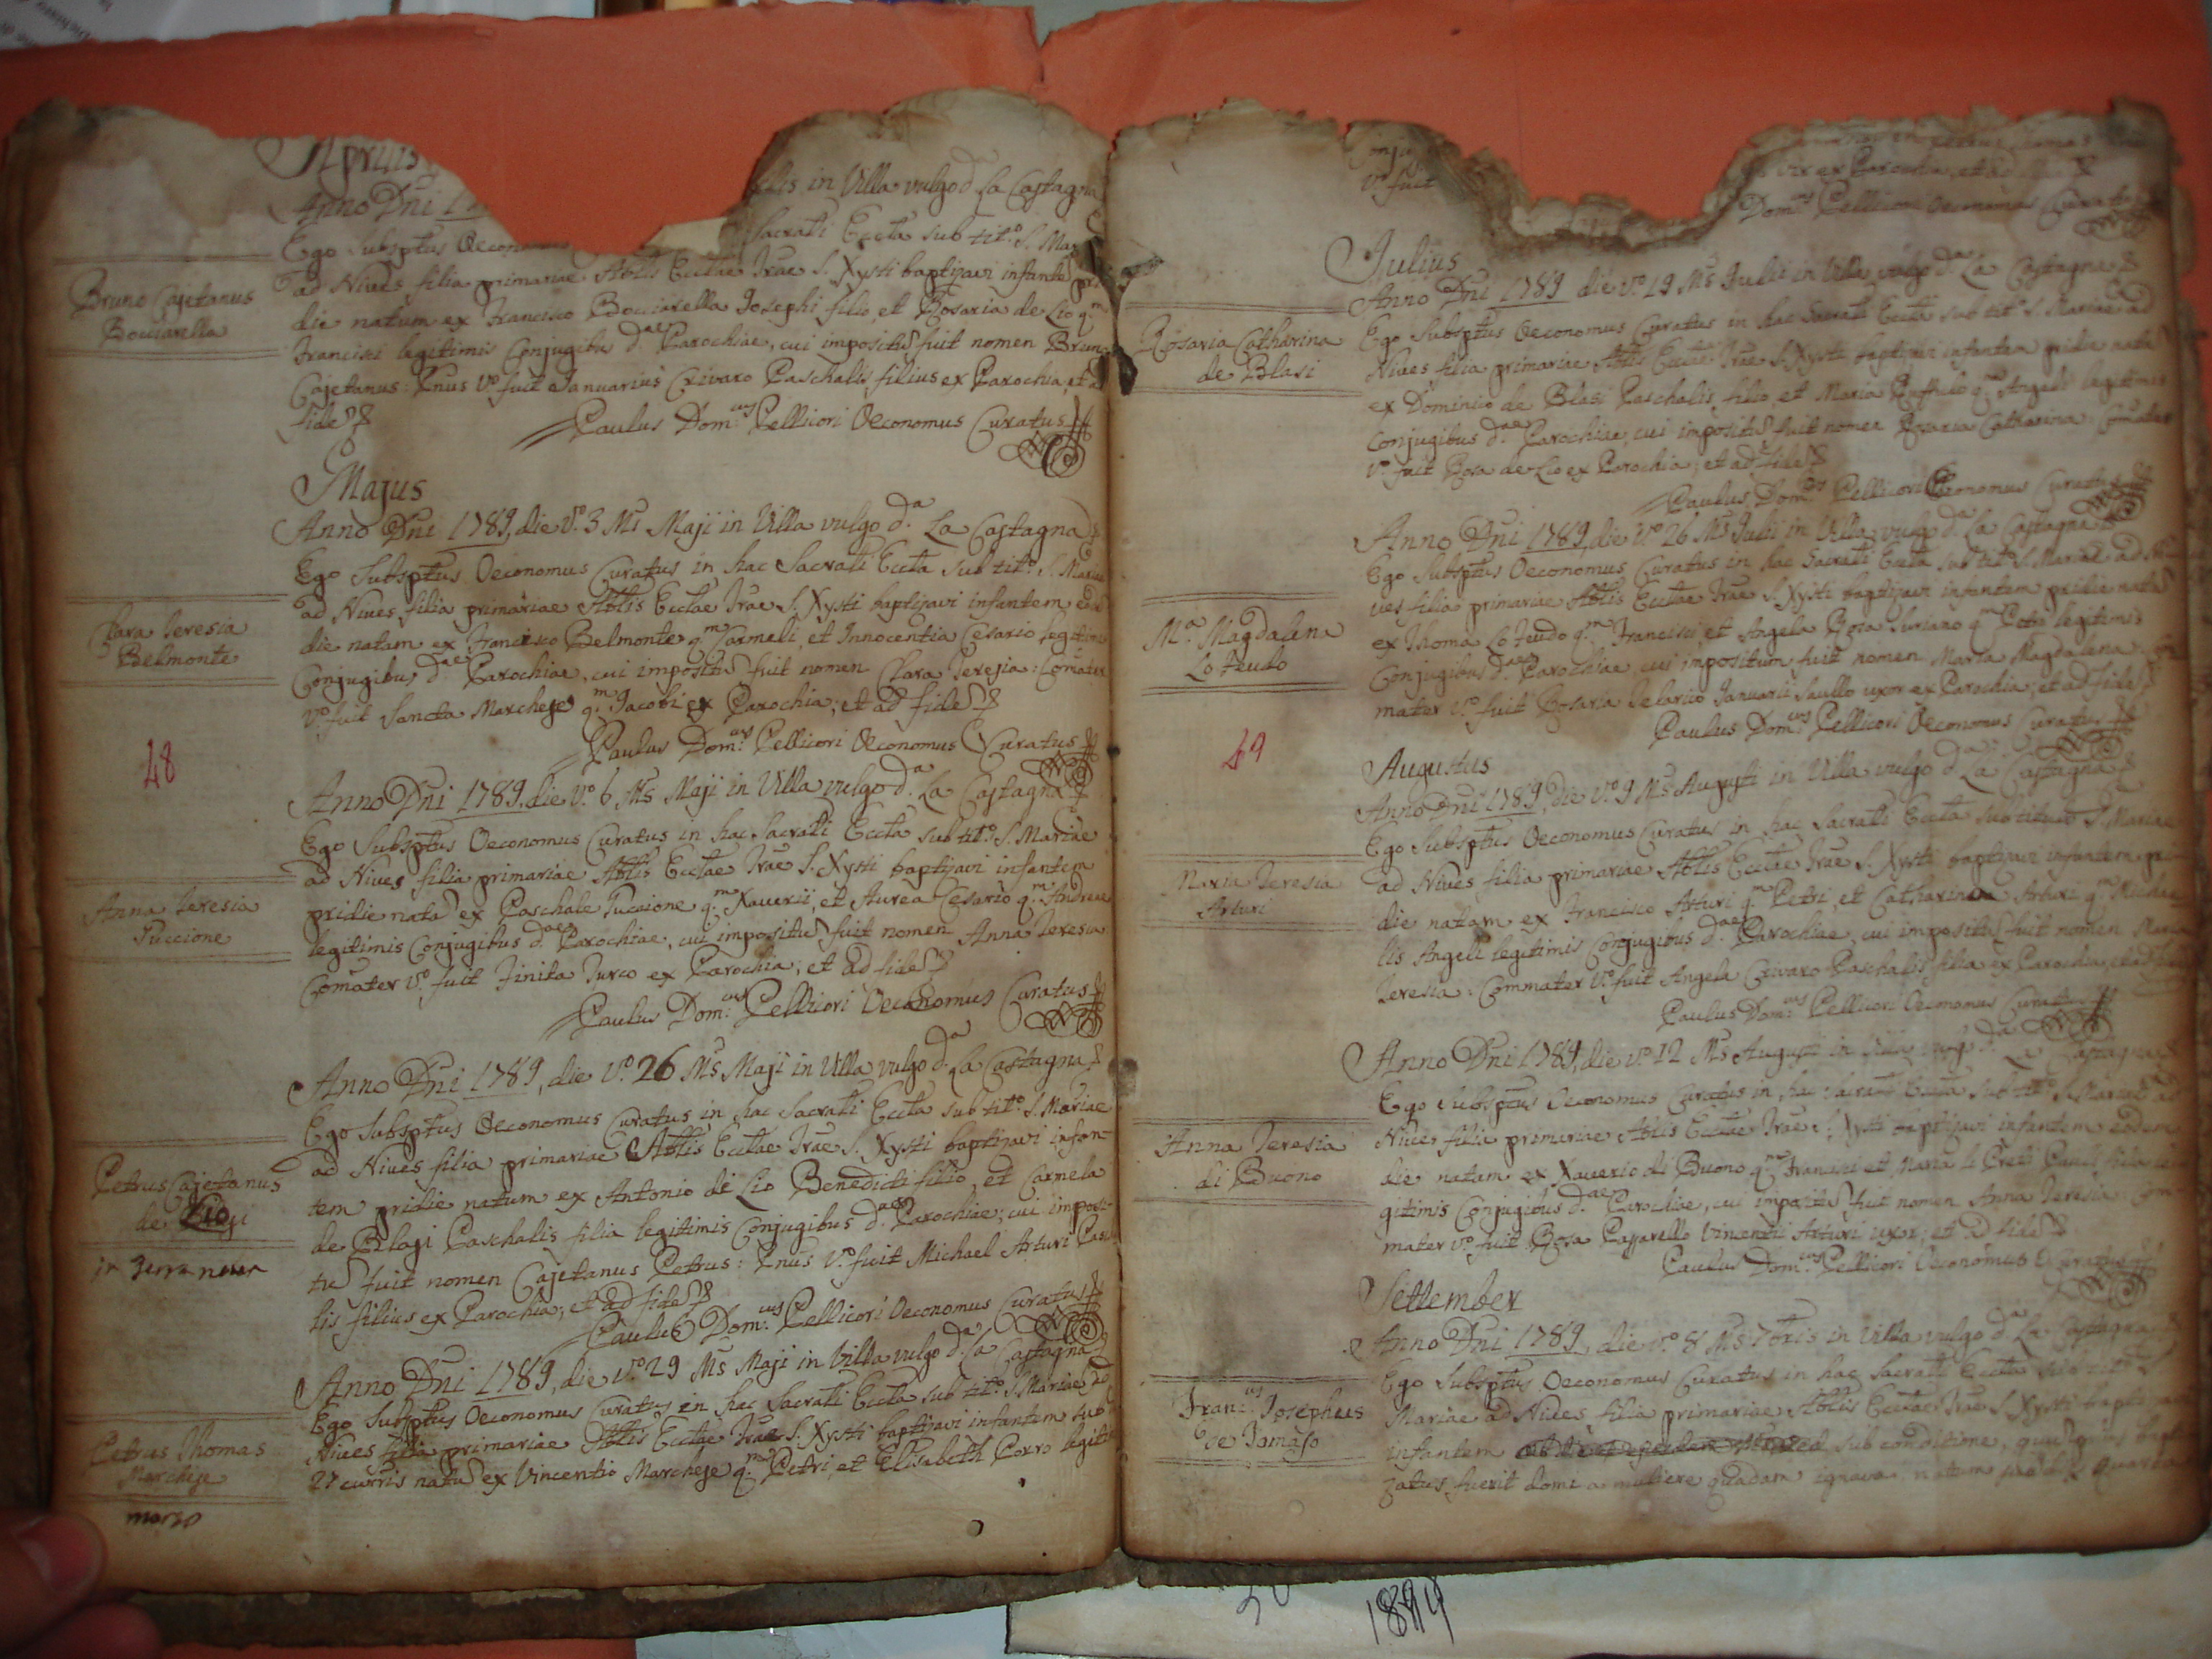 Aprilis
Anno Dni
in Villa vulgo d.a La Castagna
Ego Subsptus Oeconomus Sacrati Eccta sub tit.o S. Mar
ad Nives filia primariae Abtis Ecctae Irae S. Xysti baptizavi infante pri
die natum ex Francisco Bocciarella Josephi filio, et Rosaria de Lio q.m
Francisci legitimis Conjugibus d.ae Parochiae, cui impositu fuit nomen Bruno
Cajetanus: Pnus V.o fuit Januarius Crivaro Paschalis filius ex Parochia, et a
fide
Paulus Dom.cus Pellicori Oeconomus Curatus
Bruno Cajetanus
Bocciarella
Majus
Anno Dni 1789, die V.o 3 Ms Maji in Villa vulgo d.a La Castagna
Ego Subsptus Oeconomus Curatus in hac Sacrati Eccta sub tit.o S. Mariae
ad Nives filia primariae Abtis Ecctae Irae S. Xysti baptizavi infantem eod
die natam ex Francisco Belmonte q.m Carmeli, et Innocentia Cesario legitimi
Conjugibus d.ae Parochiae, cui impositu fuit nomen Clara Teresia: Comater
V.o fuit Sancta Marchese q.m Jacobi ex Parochia; et ad fide
Paulus Dom.cus Pellicori Oeconomus Curatus
Clara Teresia
Belmonte
48
Anno Dni 1789, die V.o 6 Ms Maji in Villa vulgo d.a La Castagna
Ego Subsptus Oeconomus Curatus in hac Sacrati Eccta sub tit.o S. Mariae
ad Nives filia primariae Abtis Ecctae Irae S. Xysti baptizavi infantem
pridie nata ex Paschale Puccione q.m Xaverii, et Aurea Cesario q.m Andreae
legitimis Conjugibus d.ae Parochiae, cui impositu fuit nomen Anna Teresia
Comater V.o fuit Finita Turco ex Parochia; et ad fide
Paulus Dom.cus Pellicori Oeconomus Curatus
Anna Teresia
Puccione
Anno Dni 1789, die V.o 26 Ms Maji in Villa vulgo d.a La Castagna
Ego Subsptus Oeconomus Curatus in hac Sacrati Eccta sub tit.o S. Mariae
ad Nives filia primariae Abtis Ecctae Irae S. Xysti baptizavi infan-
tem pridie natum ex Antonio de Lio Benedicti filio, et Carmela
de Blasi Paschalis filia legitimis Conjugibus d.ae Parochiae; cui imposi-
tu fuit nomen Cajetanus Petrus: Pnus V.o fuit Michael Arturi Pasc
lis filius ex Parochia; et ad fide
Paulus Dom.cus Pellicori Oeconomus Curatus
Petrus Cajetanus
de Lio
in Terra nova
Anno Dni 1789, die V.o 29 Ms Maji in Villa vulgo d.a La Castagna
Ego Subsptus Oeconomus Curatus in hac Sacrati Eccta sub tit.o S. Mariae ad
Nives filia primariae Abtis Ecctae Irae S. Xysti baptizavi infantem sub
27 curris natu ex Vincentio Marchese q.m Petri, et Elisabeth Porro legiti
Petrus Thomas
Marchese
morso
Conju
V.o fuit
Thomas
ex Parochia, et ad
Dom.cus Pellicori Oeconomus Curatus
Julius
Anno Dni 1789 die V.o 19 Ms Julii in Villa vulgo d.a La Castagna
Ego Subsptus Oeconomus Curatus in hac Sacrati Eccta sub tit.o S. Mariae ad
Nives filia primariae Abtis Ecctae Irae S. Xysti baptizavi infantem pridie nata
ex Dominico de Blasi Paschalis filio et Maria Ruffolo q.m Angeli legitimis
Conjugibus d.ae Parochiae, cui impositu fuit nomen Rosaria Catharina: Comater
V.o fuit Rosa de Lio ex Parochia; et ad fide
Paulus Dom.cus Pellicori Oeconomus Curatus
Rosaria Catharina
de Blasi
Anno Dni 1789, die V.o 26 Ms Julii in Villa vulgo d.a La Castagna
Ego Subsptus Oeconomus Curatus in hac Sacrati Eccta sub tit.o S. Mariae ad Ni
ves filia primariae Abtis Ecctae Irae S. Xysti baptizavi infantem pridie nata
ex Thoma Lo Feudo q.m Francisci, et Angela Rosa Suriano q.m Petri legitimis
Conjugibus d.ae Parochiae, cui impositum fuit nomen Maria Magdalena:
mater V.o fuit Rosaria Ielarico Januarii Saullo uxor ex Parochia; et ad fide
Paulus Dom.cus Pellicori Oeconomus Curatus
M.a Magdalena
Lo Feudo
49
Augustus
Anno Dni 1789, die V.o 9 Ms Augusti in Villa vulgo d.a La Castagna
Ego Subsptus Oeconomus Curatus in hac Sacrati Eccta sub titulo S. Mariae
ad Nives filia primariae Abtis Ecctae Irae S. Xysti baptizavi infantem pri
die natam ex Francisco Arturi q.m Petri, et Catharina Arturi q.m Michae
lis Angeli legitimis Conjugibus d.ae Parochiae, cui impositu fuit nomen Maria
Teresia: Commater V.o fuit Angela Crivaro Paschalis filia ex Parochia, et ad
Paulus Dom.cus Pellicori Oeconomus Curatus
Maria Teresia
Arturi
Anno Dni 1789, die V.o 12 Ms Augusti in Villa vulg d.a La Castagna
Ego Subsptus Oeconomus Curatus in hac Sacrati Eccta sub tit.o S. Mariae ad
Nives filia primariae Abtis Ecctae Irae S. Xysti baptizavi infantem eodem
die natam ex Xaverio di Buono q.m Francisci et Maria li Preti Pauli filia le
gitimis Conjugibus d.ae Parochiae, cui impositu fuit nomen Anna Teresia Com
mater V.o fuit Rosa Passarello Vincentii Arturi uxor; et ad fide
Paulus Dom.cus Pellicori Oeconomus Curatus
Anna Teresia
di Buono
Settember
Anno Dni 1789, die V.o 8 Ms 7bris in Villa vulgo d.a La Castagna
Ego Subsptus Oeconomus Curatus in hac Sacrati Eccta sub tit.o S.
Mariae ad Nives filia primariae Abtis Ecctae Irae S. Xysti bapti
infantem sub conditione
zatus fuerit domi a muliere quadam ignara natum
Fran.cus Josephus
de Tomaso
1899